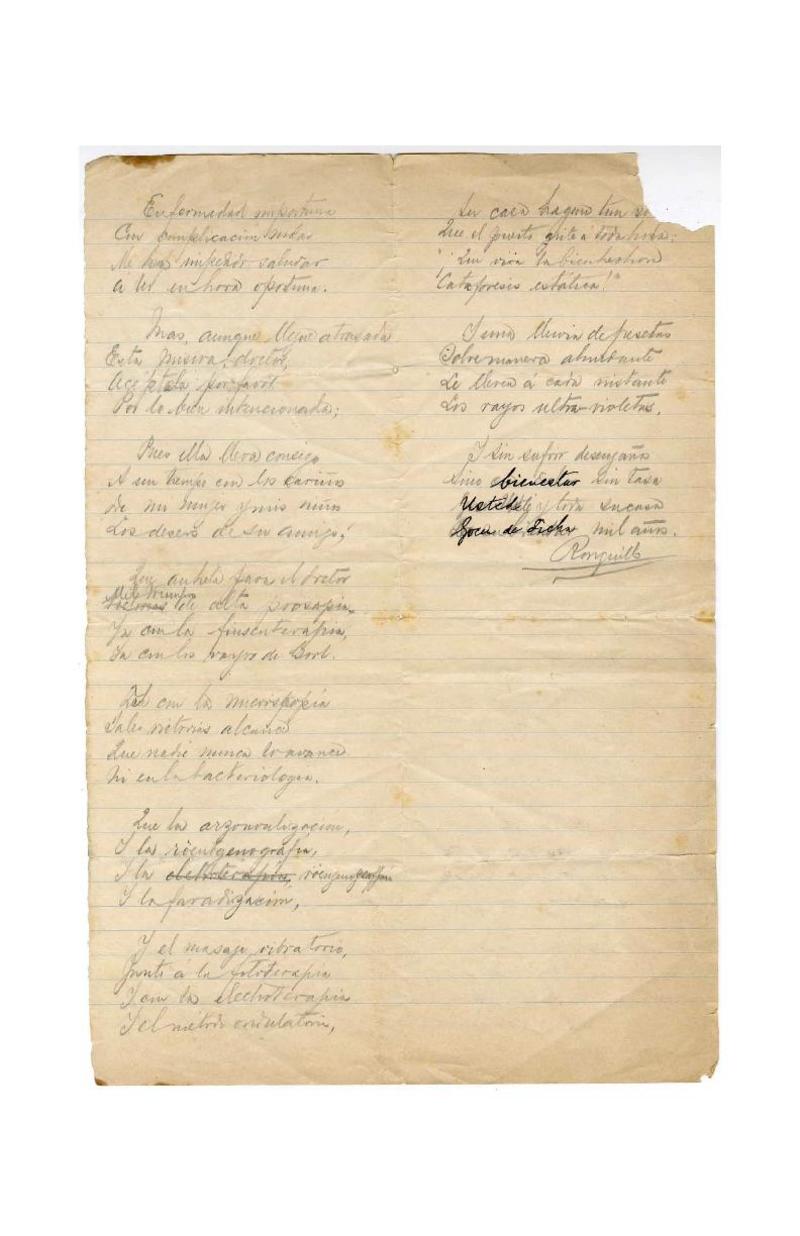 Enfermedad importuna
Con complicación
Me ha impedido saludar
A Vd en hora oportuna.
Mas, aunque llegue atrasada
Esta misiva, doctor,
Acéptela por favor
Por lo bien intencionada;
Pues ella lleva consigo
A un tiempo con los cariños
De mi mujer y mis niños
Los deseos de su amigo;
Que anhela para el doctor
Mil triunfos de alta prosapia,
Ya con la finsenterapia,
Ya con los rayos de
Que con la
Tales victorias alcance
Que nadie nunca lo avance
Ni en la bacteriología.
Que la arzonvalización,
Y la röentgenografía,
Y la electroterapia,
Y la faradización,
Y el masage vibratorio,
Junto á la fototerapia
Y con la electroterapia
Y el método ondulatorio,
Su casa hagan tan
Que el puesto grite á toda hora:
"¡Que viva la bienhechora
Cataforesis estática!"
Y una lluvia de pesetas
Sobremanera abundante
Le lleven á cada instante
Los rayos ultra-violetas.
Y sin sufrir desengaños
Sino bienestar sin tasa
Usted y toda su casa
Gocen de dicha mil años.
Ronquillo